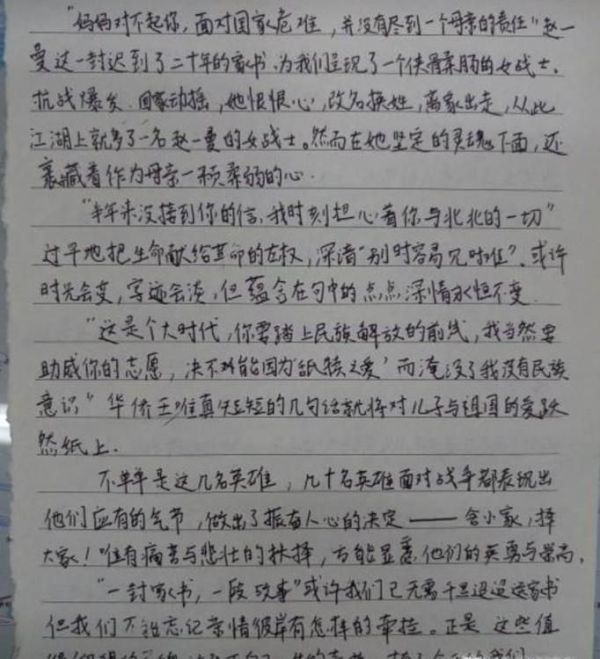 “妈妈对不起你，面对国家危难，并没有尽到一个母亲的责任”赵一
曼这一封迟到了二十年的家书，为我们呈现了一个侠骨柔肠的女战士。
抗战爆发，国家动摇，她恨恨心，改名换姓，离家出走，从此
江湖上就多了一名赵一曼的女战士。然而在她坚定的灵魂下面，还
裹藏着作为母亲一颗柔弱的心.
“半年来没接到你的信，我时刻担心着你与北北的一切”
过早地把生命献给革命的左权，深谙“别时容易见时难”，或许
时光会变，字迹会淡，但蕴含在句中的点点深情永恒不变.
“这是个大时代，你要踏上民族解放的前线，我当然要
助成你的志愿，决不能因为‘舐犊之爱’而淹没了我没有民族
意识”华侨王唯真短短的几句话就将对儿子与祖国的爱跃
然纸上.
不单单是这几名英雄，几十名英雄面对战争都表现出
他们应有的气节，做出了振奋人心的决定——舍小家，择
大家！唯有痛苦与悲壮的抉择，方能显悉他们的英勇与崇高.
“一封家书，一段故事”或许我们已无需千里迢迢送家书
但我们不能忘记亲情彼岸有怎样的牵挂。正是这些值